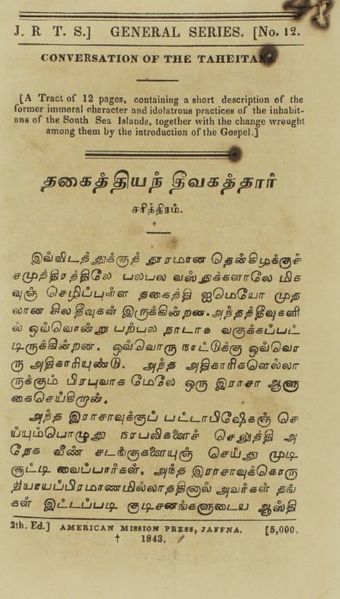 J. R. T. S.] GENERAL SERIES. [No. 12.
CONVERSATION OF THE TAHEITANS
[A Tract of 12 pages, containing a short description of the
former immoral character and idolatrous practices of the inhabit-
ans of the South Sea Islands, together with the change wrought
among them by the introduction of the Gospel.]
தகைத்தியந் தீவகத்தார்
சரித்திரம்.
இவ்விடத்துக்குத் தூரமான தென்கிழக்குச்
சமுத்திரத்திலே பலபல வஸ்துக்களாலே மிக
வுஞ் செழிப்புள்ள தகைத்தி ஐமெயோ முத
லான சில தீவுகள் இருக்கின்றன. அந்தத்தீவுகளி
ல் ஒவ்வொன்று பற்பல நாடாக வகுக்கப்பட்
டிருக்கின்றன. ஒவ்வொரு நாட்டுக்கு ஒவ்வொ
ரு அதிகாரியுண்டு. அந்த அதிகாரிகளெல்லா
ருக்கும் பிரபுவாக மேலே ஒரு இராசா ஆளு
கைசெய்கிறான்.
அந்த இராசாவுக்குப் பட்டாபிஷேகஞ் செ
ய்யும்பொழுது நரபலிகளைச் செலுத்தி அ
நேக வீண் சடங்குகளையுஞ் செய்து முடி
சூட்டி வைப்பார்கள். அந்த இராசாவுக்கொரு
நியாயப்பிரமாணமில்லாததினால் அவர்கள் தங்
கள் இட்டப்படி குடிசனங்களுடைய ஆஸ்தி
2th. Ed.] AMERICAN MISSION PRESS, JAFFNA. [5,000.
† 1843.